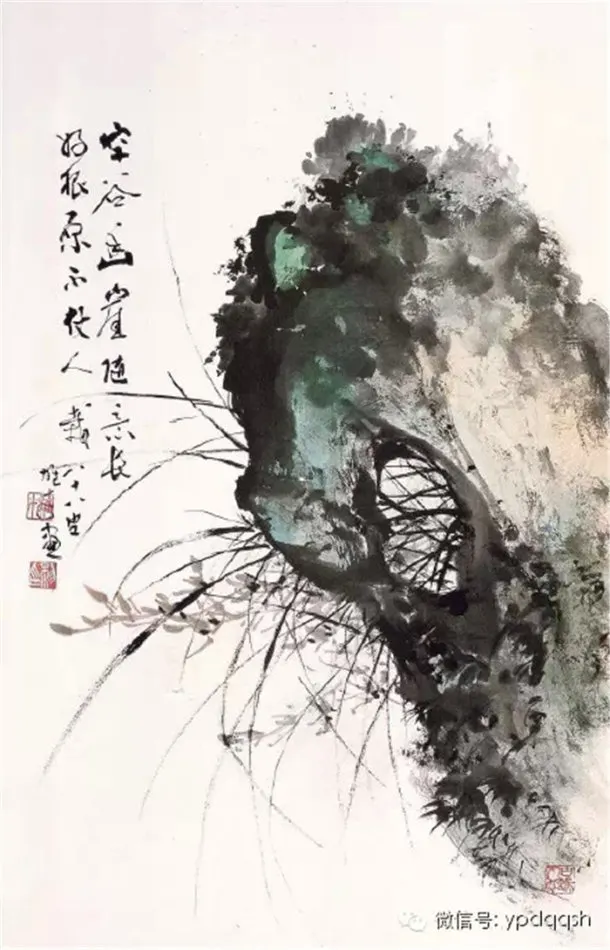 空谷幽崖随意长
根原不仗人栽
八十八叟
画
微信号: ypdqqsh